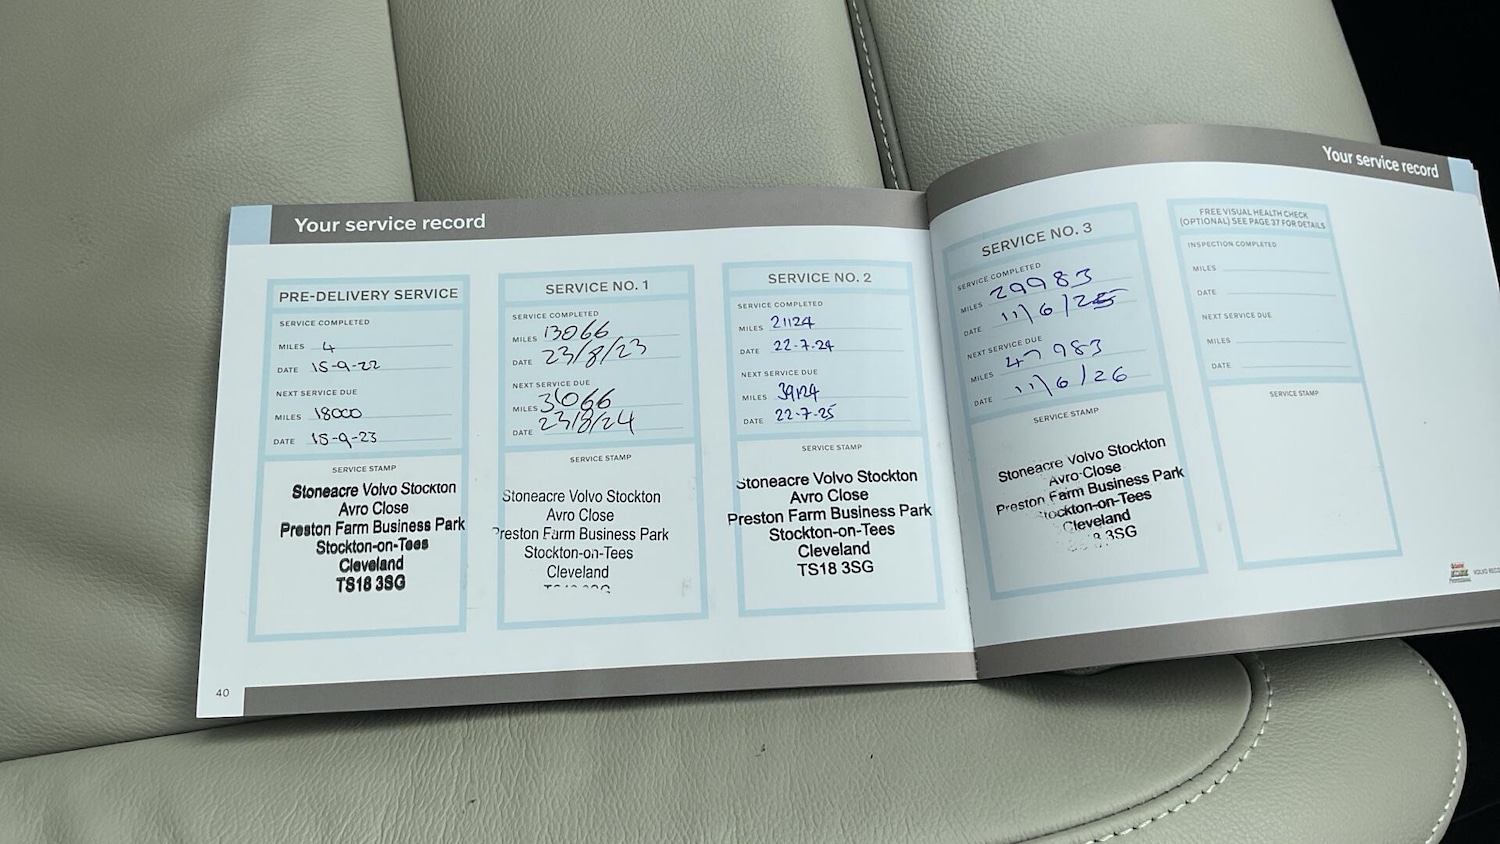 Your service record
PRE-DELIVERY SERVICE
SERVICE COMPLETED
MILES 4
DATE 15-9-22
NEXT SERVICE DUE
MILES 18000
DATE 15-9-23
SERVICE STAMP
Stoneacre Volvo Stockton
Avro Close
Preston Farm Business Park
Stockton-on-Tees
Cleveland
TS18 3SG
SERVICE NO. 1
SERVICE COMPLETED
MILES 13066
DATE 23/8/23
NEXT SERVICE DUE
MILES 3066
DATE 23/8/24
SERVICE STAMP
Stoneacre Volvo Stockton
Avro Close
Preston Farm Business Park
Stockton-on-Tees
Cleveland
SERVICE NO. 2
SERVICE COMPLETED
MILES 21124
DATE 22-7-24
NEXT SERVICE DUE
MILES 39124
DATE 22-7-25
SERVICE STAMP
Stoneacre Volvo Stockton
Avro Close
Preston Farm Business Park
Stockton-on-Tees
Cleveland
TS18 3SG
40
Your service record
SERVICE NO. 3
SERVICE COMPLETED
MILES 29983
DATE 11/6/25
NEXT SERVICE DUE
MILES 47983
DATE 11/6/26
SERVICE STAMP
Stoneacre Volvo Stockton
Avro Close
Preston Farm Business Park
Stockton-on-Tees
Cleveland
3SG
FREE VISUAL HEALTH CHECK
(OPTIONAL) SEE PAGE 37 FOR DETAILS
INSPECTION COMPLETED
MILES
DATE
NEXT SERVICE DUE
MILES
DATE
SERVICE STAMP
VOLVO